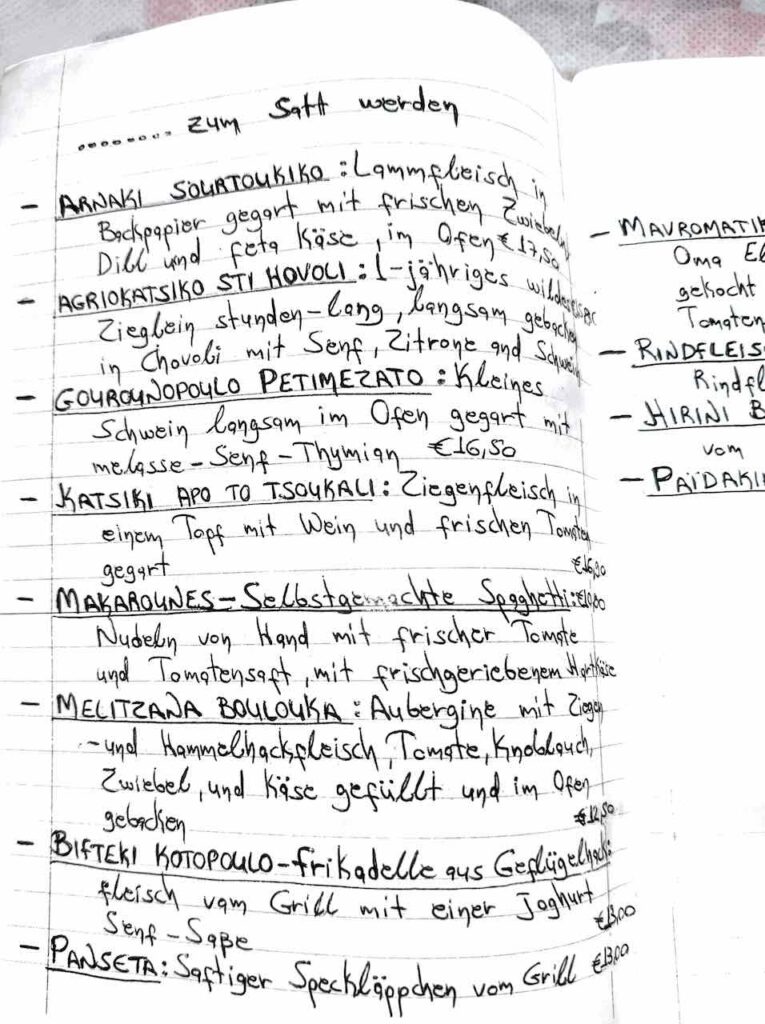 ........ zum Satt werden
- ARNAKI SOURTOUKIKO : Lammfleisch in
Backpapier gegart mit frischen Zwiebeln
Dill und feta Käse, im Ofen € 17,50
- AGRIOKATSIKO STI HOVOLI : 1-jähriges
Zieglein stunden-lang, langsam gebacken
in Chovoli mit Senf, Zitrone and
- GOUROUNOPOULO PETIMEZATO : Kleines
Schwein langsam im Ofen gegart mit
melasse-Senf-Thymian €16,50
- KATSIKI APO TO TSOUKALI : Ziegenfleisch in
einem Topf mit Wein und frischen Tomaten
gegart
- MAKAROUNES - Selbstgemachte Spaghetti:
Nudeln von Hand mit frischer Tomate
und Tomatensaft, mit frischgeriebenem Hartkäse
- MELITZANA BOULOUKA : Aubergine mit Ziegen
-und Hammelhackfleisch, Tomate, Knoblauch,
Zwiebel, und Käse gefüllt und im Ofen
gebacken €12,50
- BIFTEKI KOTOPOULO - frikadelle aus Geflügelhack:
fleisch vom Grill mit einer Joghurt
Senf-Soße €13,00
- PANSETA : Saftiger Speckläppchen vom Grill €13,00
- MAVROMATIK
Oma El
gekocht
Tomaten
- RINDFLEIS
Rindfl
- HIRINI B
vom
- PAÏDAKI